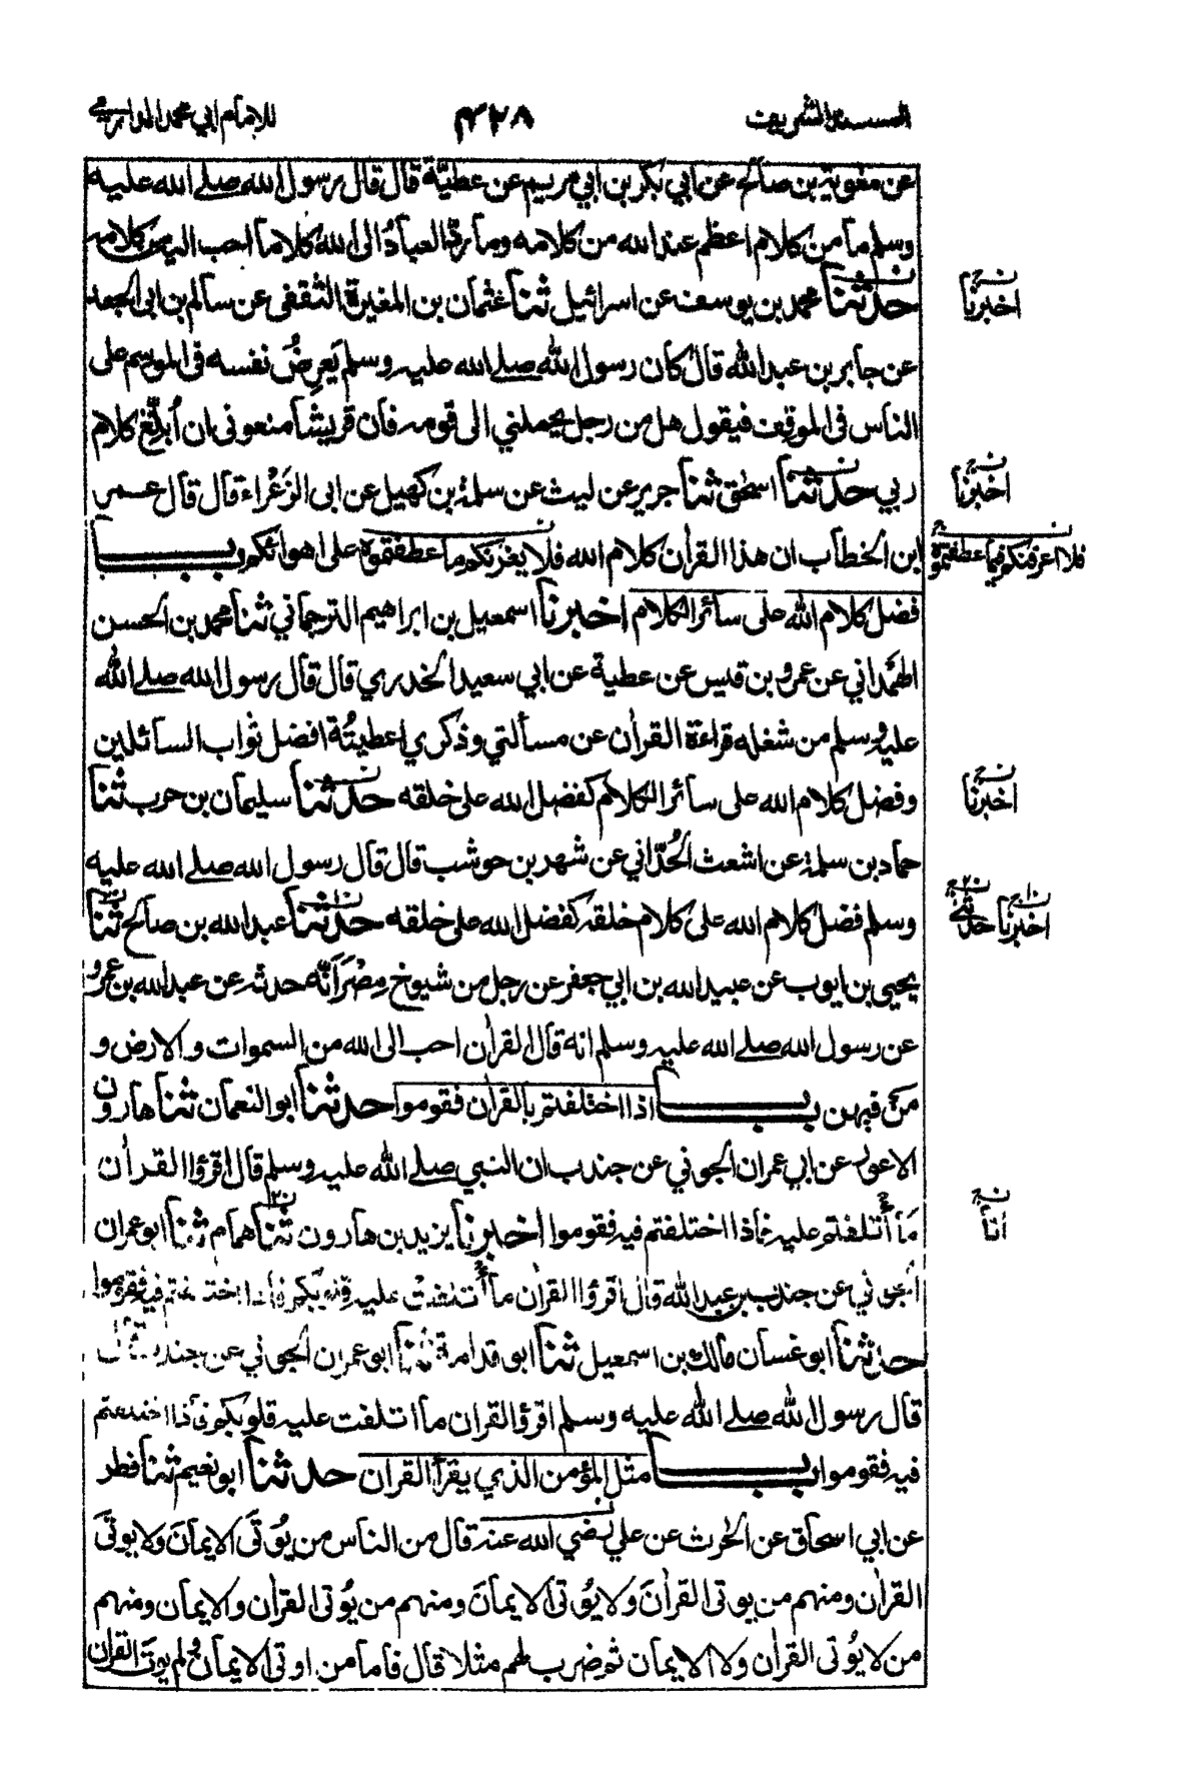 المسند الشريف ۴۲۸ للامام ابي محمد الدارمي
عن معوية بن صالح عن ابي بكر بن ابي مريم عن عطية قال قال رسول الله صلے الله عليه
وسلم ما من كلام اعظم عند الله من كلامه وما ردّ العبادُ الى الله كلاما احب اليه من كلامه
حدثنا محمد بن يوسف عن اسرائيل ثنا عثمان بن المغيرة الثقفى عن سالم بن ابى الجعد
اخبرنا
عن جابر بن عبد الله قال كان رسول الله صلے الله عليه وسلم يَعرِضُ نفسه فى الموسم على
الناس فى الموقف فيقول هل من رجل يحملني الى قومه فان قريشا منعونى ان اُبلّغ كلام
ربي حدثنا اسحٰق ثنا جرير عن ليث عن سلمة بن كهيل عن ابى الزَعْراء قال قال عمر
اخبرنا
ابن الخطاب ان هذا القرأن كلام الله فلا يغرنكم ما عطفتموه على اهوائكم بــــاب
فلا اعرفنكم فيما عطفتموه
فضل كلام الله على سائر الكلام اخبرنا اسمعيل بن ابراهيم الترجماني ثنا محمد بن الحسن
الهمْداني عن عمرو بن قيس عن عطية عن ابي سعيد الخدري قال قال رسول الله صلے الله
عليه وسلم من شغله قراءة القرأن عن مسألتي وذكري اعطيتُه افضل ثواب السائلين
وفضل كلام الله على سائر الكلام كفضل الله على خلقه حدثنا سليمان بن حرب ثنا
اخبرنا
حماد بن سلمة عن اشعث الحُدّاني عن شهر بن حوشب قال قال رسول الله صلے الله عليه
وسلم فضل كلام الله على كلام خلقه كفضل الله على خلقه حدثنا عبد الله بن صالح ثنا
اخبرنا حدثني
يحيى بن ايوب عن عبيد الله بن ابي جعفر عن رجل من شيوخ مِصْرَ اَنّه حدثه عن عبد الله بن عمرو
عن رسول الله صلے الله عليه وسلم انه قال القرأن احب الى الله من السموات والارض و
من فيهن بــــاب اذا اختلفتم بالقرأن فقوموا حدثنا ابو النعمان ثنا هارون
الاعور عن ابي عمران الجوني عن جندب ان النبي صلے الله عليه وسلم قال اقرؤا القرأن
ما أْتلفتم عليه فاذا اختلفتم فيه فقوموا اخبرنا يزيد بن هارون ثنا همام ثنا ابو عمران
انا
الجوني عن جندب بن عبد الله قال اقرؤا القرأن ما أْتلفت عليه قلوبكم فاذا اختلفتم فيه فقوموا
حدثنا ابو غسان مالك بن اسمعيل ثنا ابو قدامة ثنا ابو عمران الجوني عن جندب قال
قال رسول الله صلے الله عليه وسلم اقرؤ القرأن ما اتلفت عليه قلوبكم فاذا اختلفتم
فيه فقوموا بــــاب مثل المؤمن الذي يقرأ القرأن حدثنا ابو نعيم ثنا فطر
عن ابي اسحاق عن الحٰرث عن علي رضي الله عنه قال من الناس من يُوتَى الايمانَ ولا يوتَى
القرأن ومنهم من يوتى القرأنَ ولا يُوتى الايمانَ ومنهم من يُوتى القرأن والايمان ومنهم
من لا يُوتى القرأن ولا الايمان ثم ضرب لهم مثلا قال فاما من اوتى الايمان ولم يوت القرأن